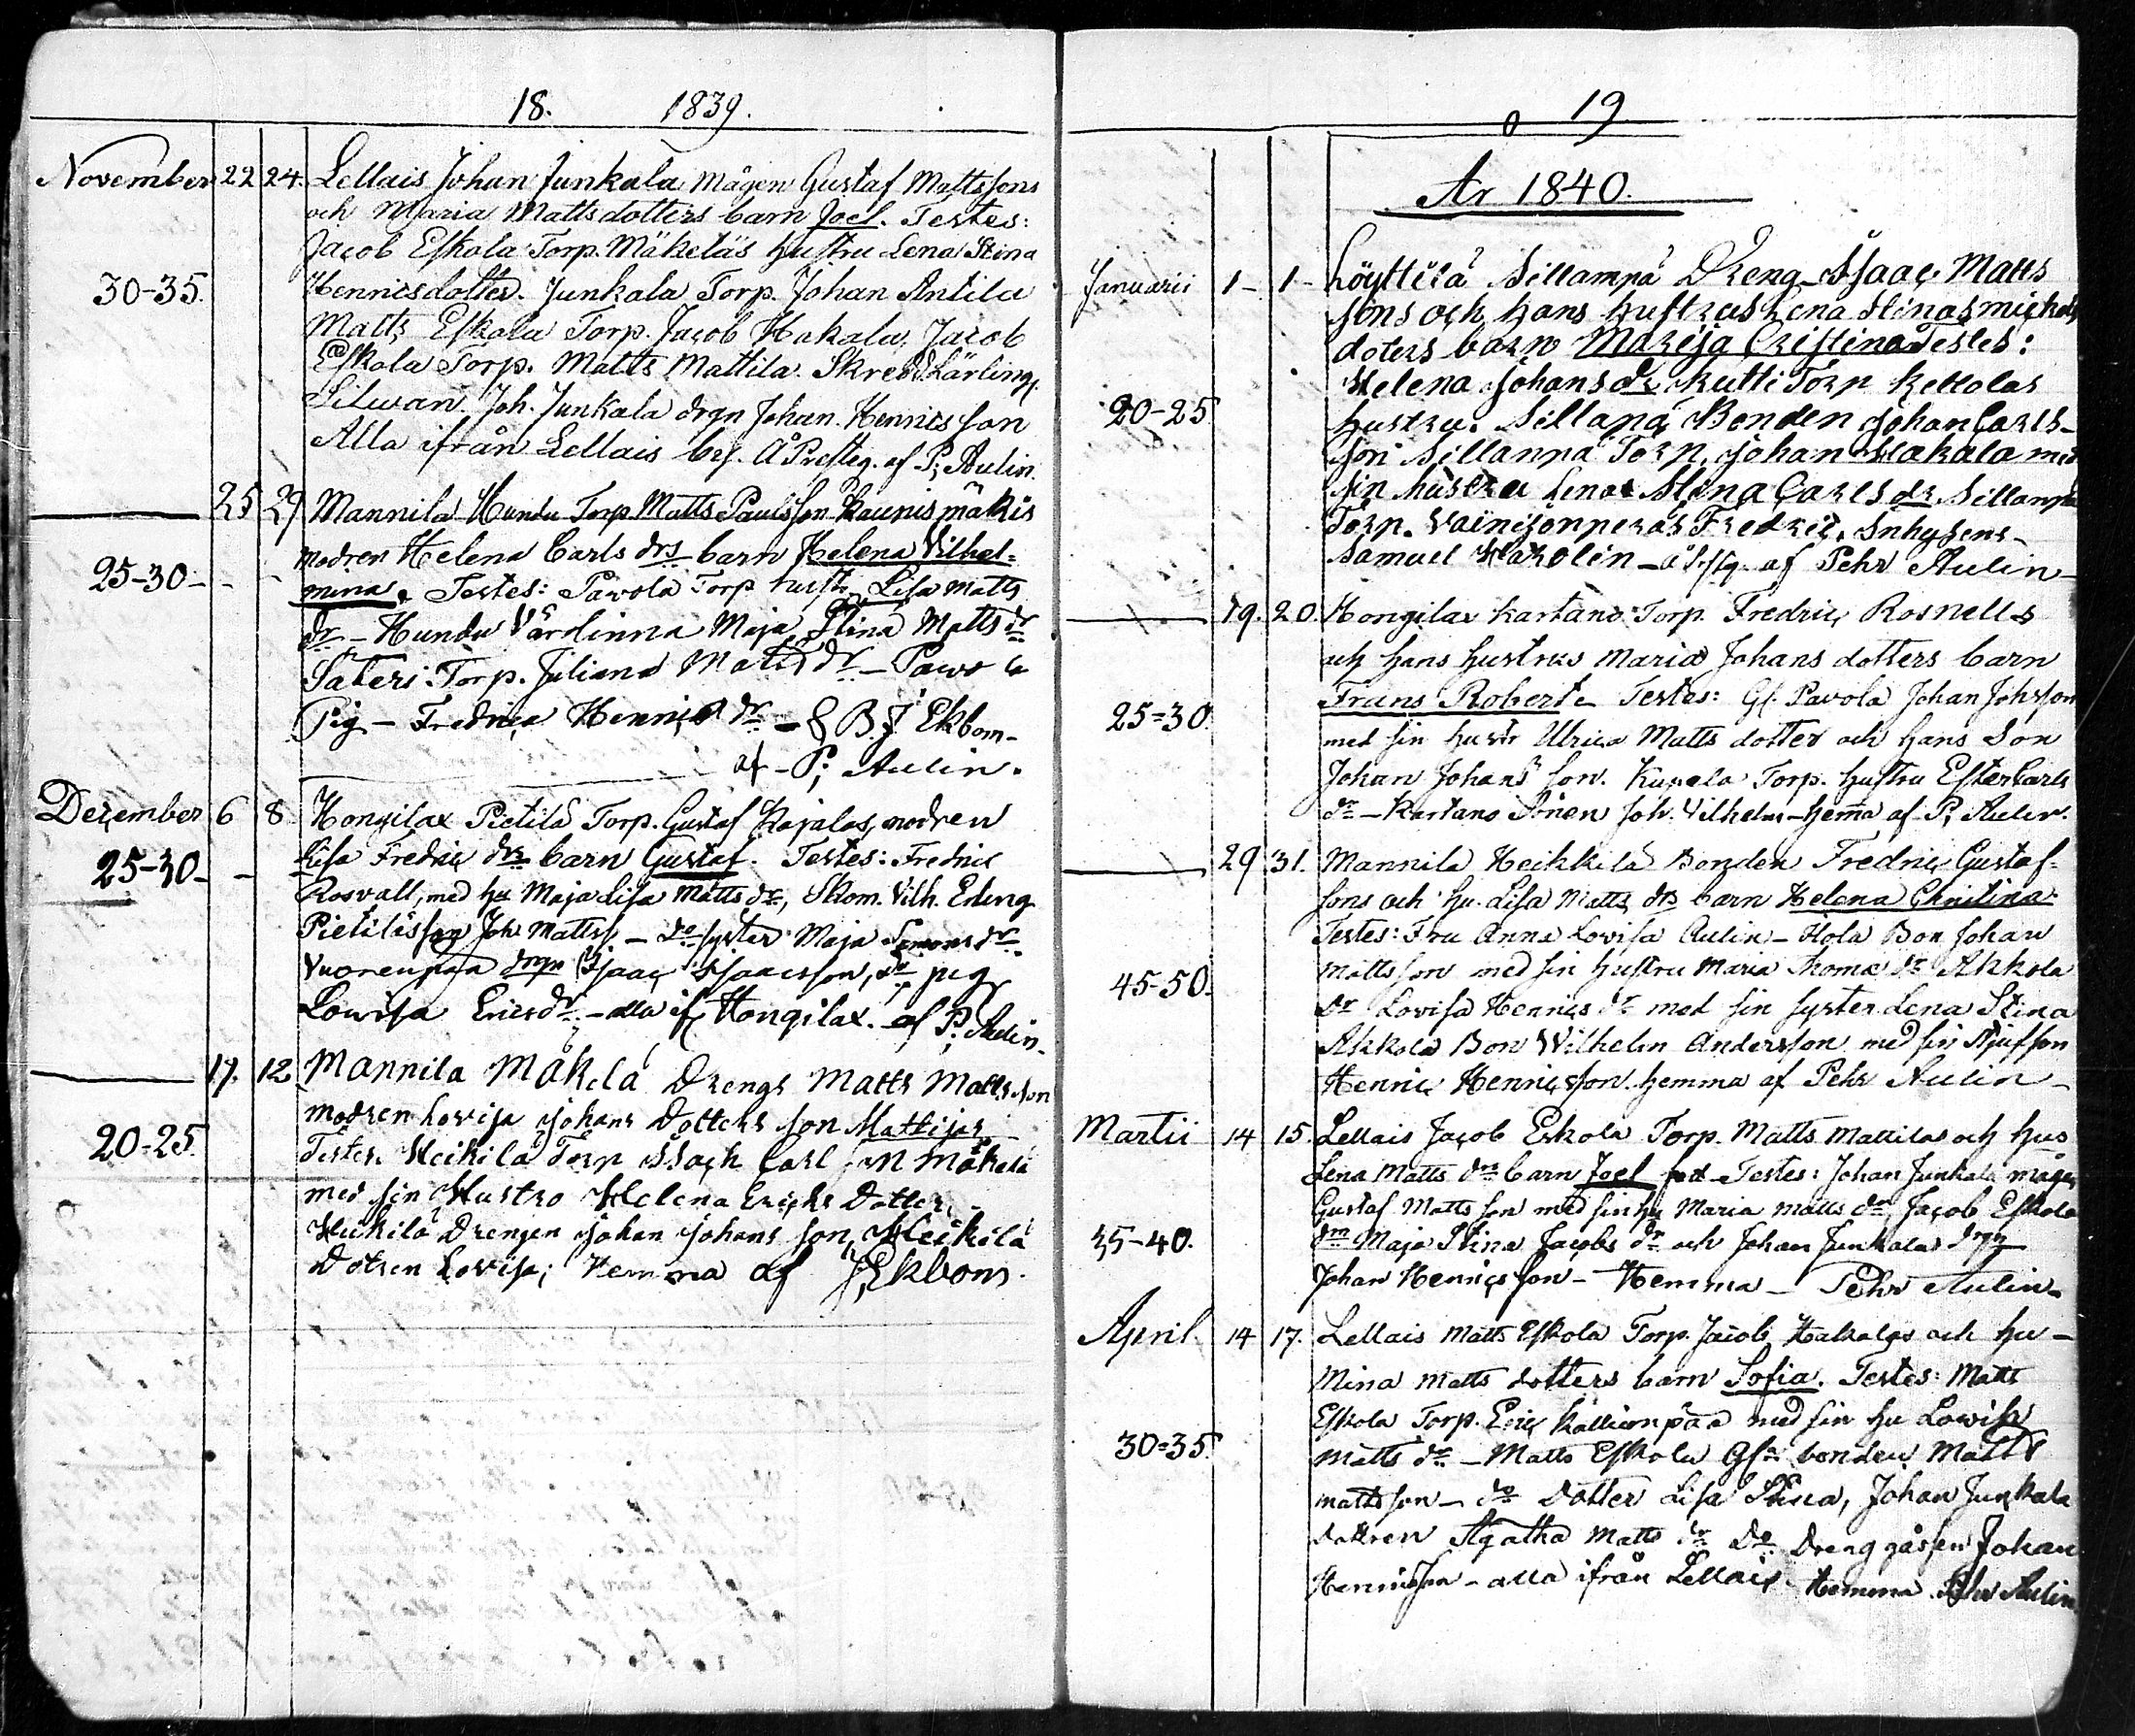 18. 1839.
November 22 24. Lellais Johan Junkala mågen Gustaf Mattssons
och Maria Mattsdotters barn Joel. Testes:
Jacob Eskola Torp. Mäkeläs hustru Lena Stina
30-35. Henricsdotter. Junkala Torp. Johan Antila
Matts Eskola Torp. Jacob Hakala, Jacob
Eskola Torp. Matts Mattila. Skredd. Lärling.
Silwan. Joh. Junkala drgn Johan Henricsson
Alla ifrån Lellais by. Å Presteg. af P; Aulin.
25 29 Mannila Hundu Torp Matts Paulsson Kaunismäkis
modren Helena Carls drs barn Helena Vilhel=
25-30 mina. Testes: Pavola Torp hustr Lisa Matts
dr - Hundu Värdinna Maja Stina Matts dr
Säteri Torp. Juliana Matts dr - Pawo
Pig - Fredrica Henrics dr - B. J. Ekbom-
af - P; Aulin.
December 6 8 Hongilax Pietilä Torp. Gustaf Kajalas, modren
25-30 Lisa Fredric drs barn Gustaf. Testes: Fredric
Rosvall, med hu Maja Lisa Matts dr, Skom. Vilh.
Pietiläs son Joh Mattss. - do syster Maja Simons dr
Vuorenpää drgn Isaac Isaacsson, do pig
Lovisa Erics dr. - alla if Hongilax. af P; Aulin-
17. 12 Mannila Mäkelä Drengs Matts Mattsson
modren Lovisa Johans Dotters son Mattijas
20-25. Testes. Heikilä Torp Isach Carl son Mäkelä
med sin Hustro Helena Erichs Dotter,
Heikilä Drengen Johan Johans son, Heikilä
Dotren Lovisa; Hemma af J; Ekbom.
19.
År 1840.
Januarii 1- 1- Löyttilä Sillampä Dreng Isaac Matts
sons och hans hustrus Lena Stinas Mickels
doters barn Marija Cristina Testes:
Helena Johans dr Kutti Torp Kellolas
20-25 hustru. Sillanpä Bonden Johan Carls-
son Sillanpä Torp. Johan Hakala med
sin hustru Lena Stina Carls dr Sillampä
Torp. Fredric. Inhysens-
Samuel Harolin - af Pehr Aulin-
19. 20. Hongilax Kartano Torp. Fredric Rosnells
och hans hustrus Maria Johans dotters barn
Frans Robert Testes: Gl. Pavola Johan Johsson
25=30. med sin hustr Ulrica Matts dotter och hans Son
Johan Johans son. Torp. hustru Ester Carls
dr - Kartano Sonen Joh. Vilhelm - hemma af P; Aulin.
29 31. Mannila Heikkilä Bonden Fredric Gustaf-
sons och hu. Lisa Matts drs barn Helena Christina
Testes: Fru Anna Lovisa Aulin - Bon Johan
45-50. Mattsson med sin hustru Maria Thomas dr Akkola
dr Lovisa Henrics dr med sin syster Lena Stina
Akkola Bon Wilhelm Andersson med sin Stjufson
Henric Henricsson. hemma af Pehr Aulin-
Martii 14 15. Lellais Jacob Eskola Torp. Matts Mattilas och hus
Lena Matts drs barn Joel Testes: Johan Junkala mågen
Gustaf Matts son med sin hu Maria Matts dr, Jacob Eskola
35-40. Maja Stina Jacobs dr och Johan Junkalas drgn
Johan Henricsson - Hemma - Pehr Aulin-
April. 14 17. Lellais Matts Eskola Torp. Jacob Hakalas och hu-
Mina Matts dotters barn Sofia. Testes: Matts
Eskola Torp. Eric Källionpää med sin hu Lowisa
30=35. Matts dr - Matts Eskola bonden Matts
Mattsson - do Dotter Lisa Stina, Johan Junkala
dottren Agatha Matts dr do Dreng gåssen Johan
Henricsson - alla ifrån Lellais. Hemma. Pehr Aulin.